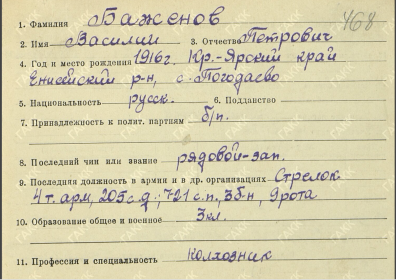 468
1. Фамилия Баженов
2. Имя Василий 3. Отчество Петрович
4. Год и место рождения 1916г. Кр.-Ярский край
Енисейский р-н, с. Погодаево
5. Национальность русск. 6. Подданство
7. Принадлежность к полит. партиям б/п.
8. Последний чин или звание рядовой-зап.
9. Последняя должность в армии и в др. организациях Стрелок
4 т. арм, 205 с.д.; 721 с.п., 3 б-н, 9 рота
10. Образование общее и военное 3 кл.
11. Профессия и специальность колхозник